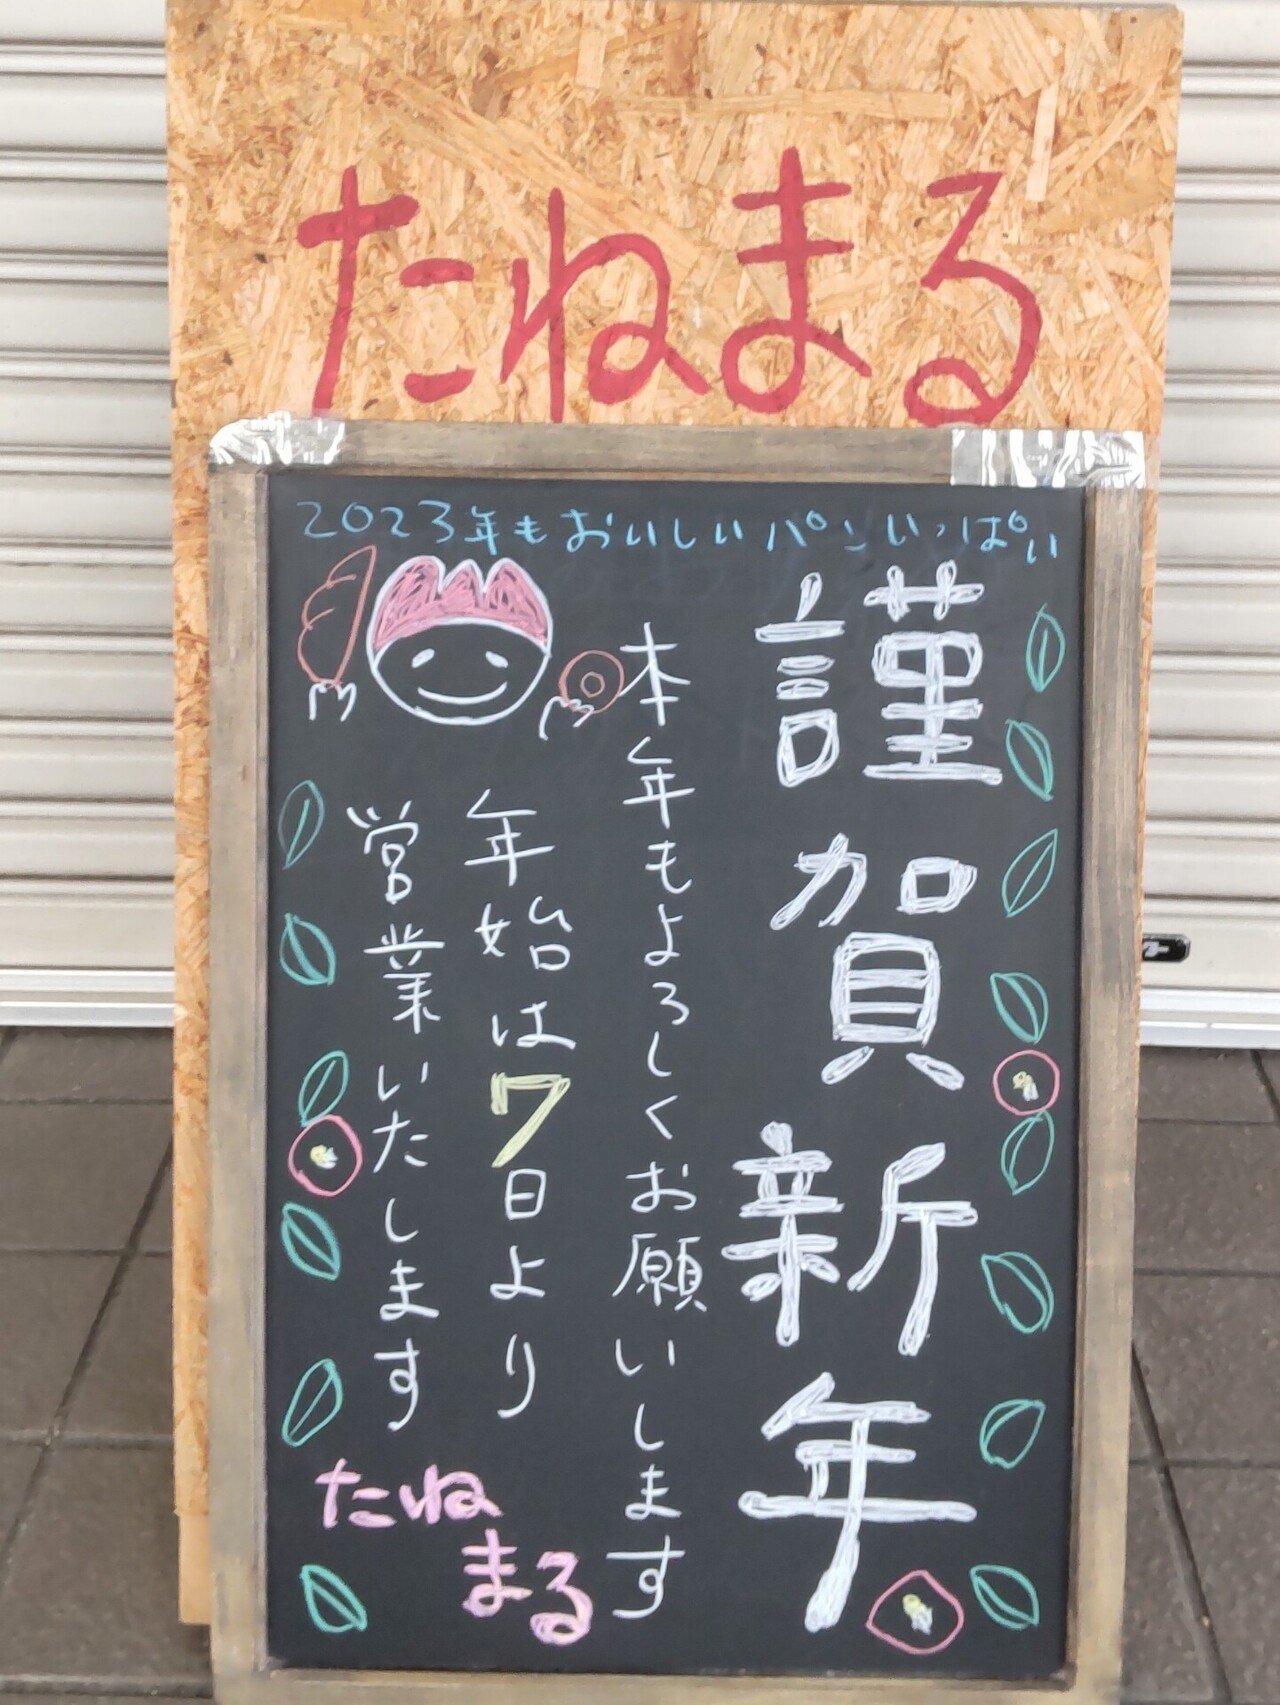 たねまる
2023年もおいしいパンいっぱい
謹賀新年
本年もよろしくお願いします
年始は7日より
営業いたします
たね
まる